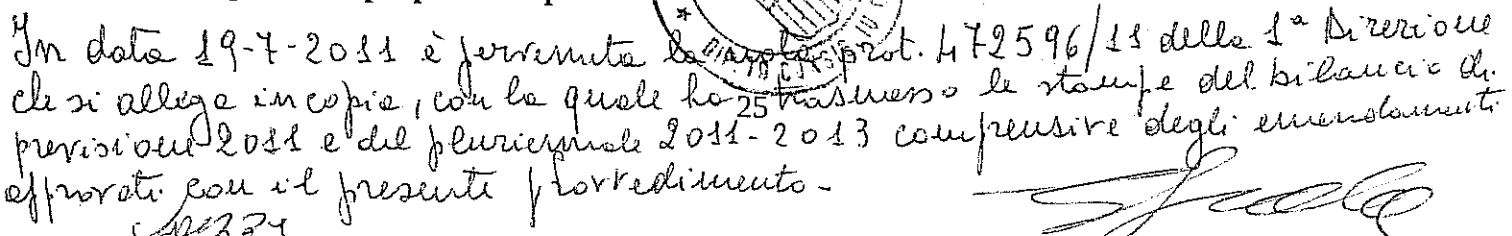 In data 19-7-2011 è pervenuta la nota prot. 472596/11 della 1ª Direzione
che si allega in copia, con la quale ha trasmesso le stampe del bilancio di
25
previsione 2011 e del pluriennale 2011-2013 comprensive degli emendamenti
approvati con il presente provvedimento.